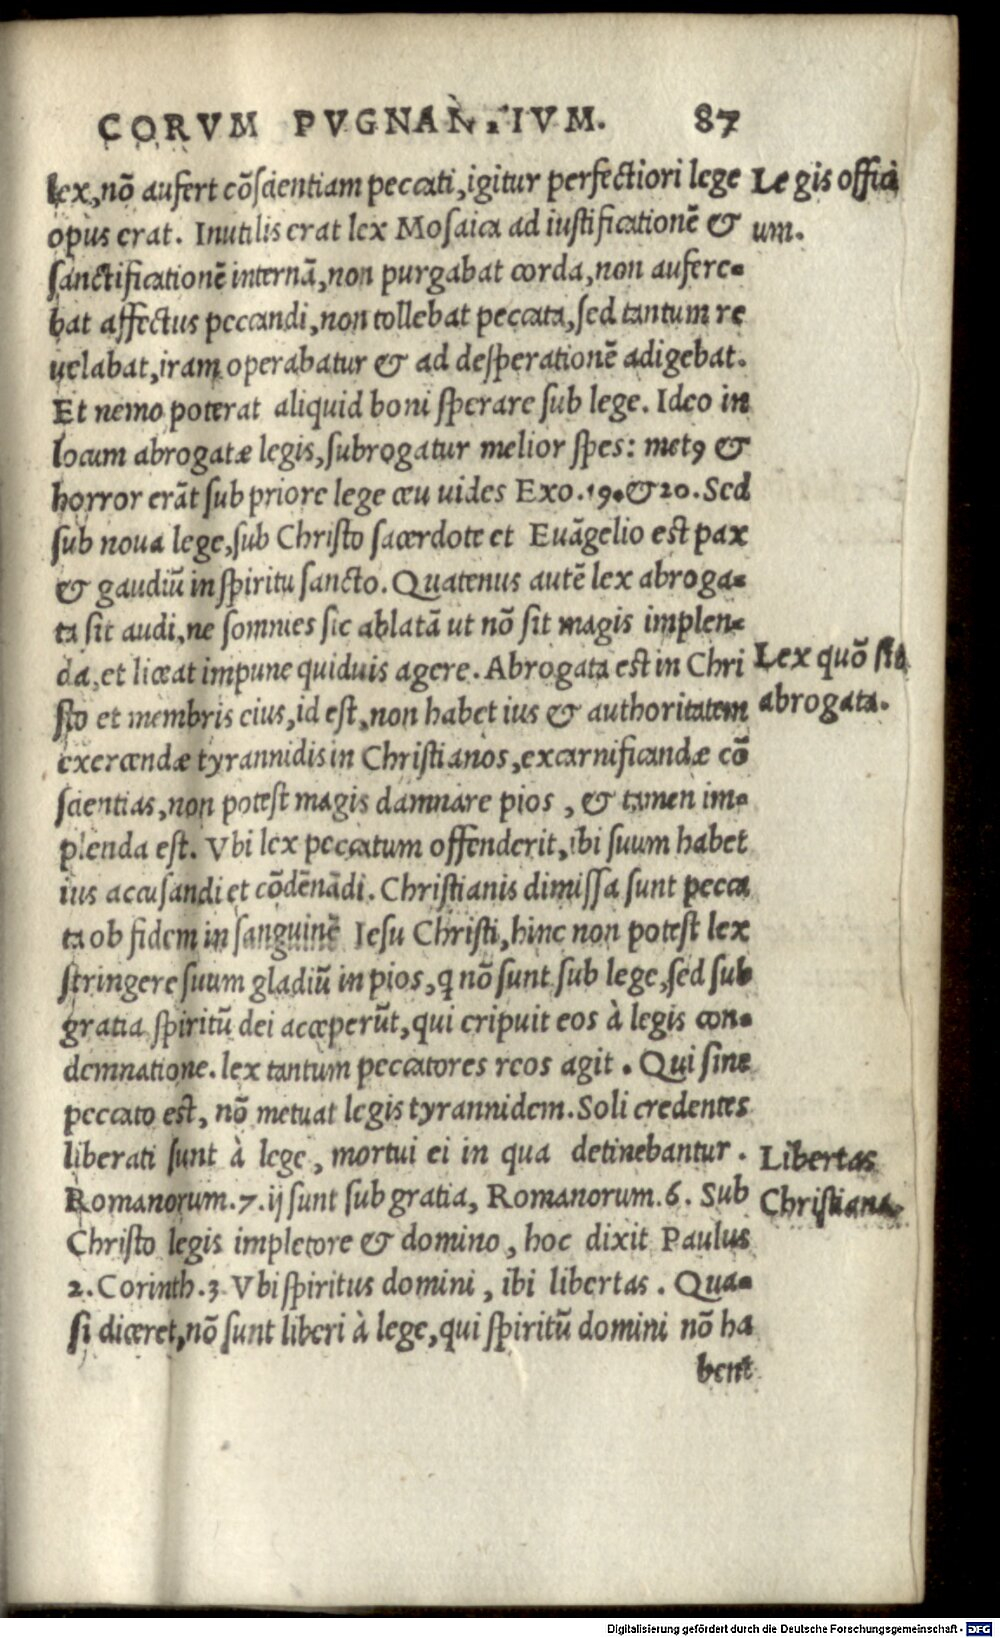 CORVM PVGNANTIVM. 87
lex, nō aufert cōscientiam peccati, igitur perfectiori lege
Legis offici
opus erat. Inutilis erat lex Mosaica ad iustificationē &
um.
sanctificationē internā, non purgabat corda, non aufere-
bat affectus peccandi, non tollebat peccata, sed tantum re
uelabat, iram operabatur & ad desperationē adigebat.
Et nemo poterat aliquid boni sperare sub lege. Ideo in
locum abrogatæ legis, subrogatur melior spes: metꝰ &
horror erāt sub priore lege ceu uides Exo. 19. & 20. Sed
sub noua lege, sub Christo sacerdote et Euāgelio est pax
& gaudiū in spiritu sancto. Quatenus autē lex abroga-
ta sit audi, ne somnies sic ablatā ut nō sit magis implen-
da, et liceat impune quiduis agere. Abrogata est in Chri
Lex quō sit
sto et membris eius, id est, non habet ius & authoritatem
abrogata.
exercendæ tyrannidis in Christianos, excarnificandæ cō
scientias, non potest magis damnare pios, & tamen im-
plenda est. Vbi lex peccatum offenderit, ibi suum habet
ius accusandi et cōdēnādi. Christianis dimissa sunt pecca
ta ob fidem in sanguinē Iesu Christi, hinc non potest lex
stringere suum gladiū in pios, q nō sunt sub lege, sed sub
gratia spiritū dei acceperūt, qui eripuit eos à legis con-
demnatione. lex tantum peccatores reos agit. Qui sine
peccato est, nō metuat legis tyrannidem. Soli credentes
liberati sunt à lege, mortui ei in qua detinebantur.
Libertas
Romanorum. 7. ij sunt sub gratia, Romanorum. 6. Sub
Christiana.
Christo legis impletore & domino, hoc dixit Paulus
2. Corinth. 3 Vbi spiritus domini, ibi libertas. Qua-
si diceret, nō sunt liberi à lege, qui spiritū domini nō ha
bent
Digitalisierung gefördert durch die Deutsche Forschungsgemeinschaft - DFG